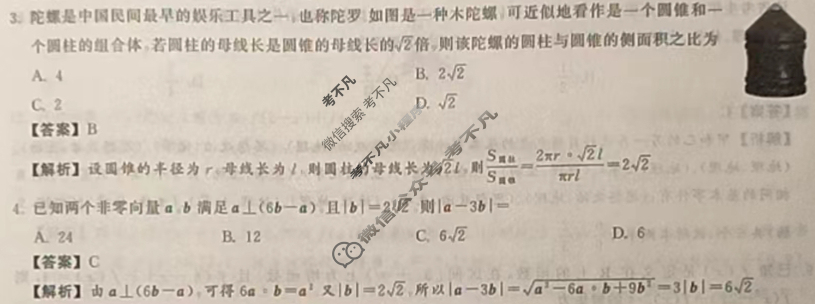 3. 陀螺是中国民间最早的娱乐工具之一,也称陀罗.如图是一种木陀螺,可近似地看作是一个圆锥和一
个圆柱的组合体,若圆柱的母线长是圆锥的母线长的√2倍,则该陀螺的圆柱与圆锥的侧面积之比为
A. 4 B. 2√2
C. 2 D. √2
【答案】B
【解析】设圆锥的半径为r,母线长为l,则圆柱的母线长为√2l,则S圆柱/S圆锥=2πr·√2l/πrl=2√2.
4. 已知两个非零向量a,b满足a⊥(6b-a),且|b|=2√2,则|a-3b|=
A. 24 B. 12 C. 6√2 D. 6
【答案】C
【解析】由a⊥(6b-a),可得6a·b=a²,又|b|=2√2,所以|a-3b|=√a²-6a·b+9b²=3|b|=6√2
考不凡
微信搜索 考不凡
考不凡小程序
微信公众号考不凡